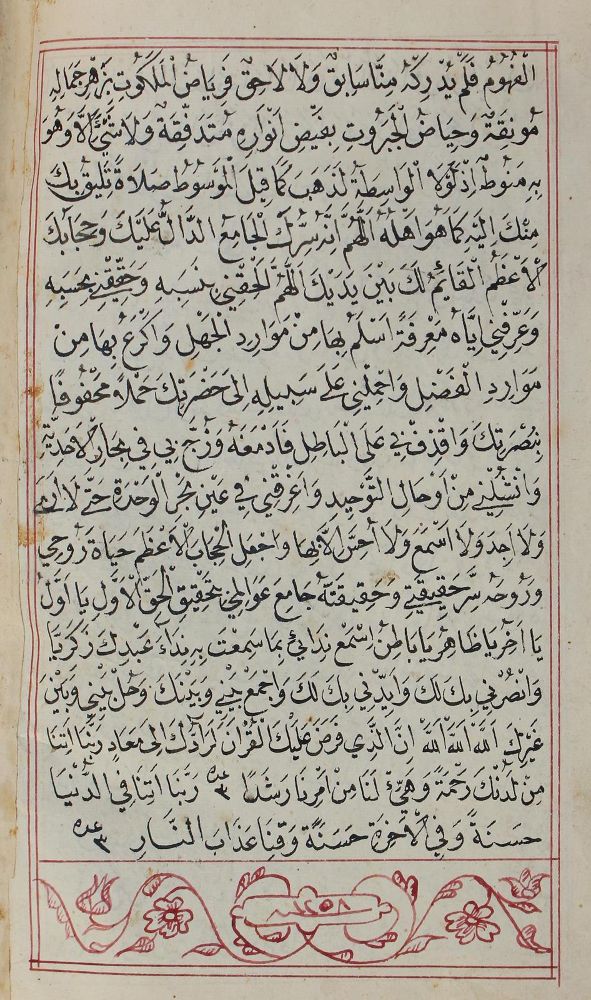 الْفُهُومُ فَلَمْ يُدْرِكْهُ مِنَّا سَابِقٌ وَلَا لَاحِقٌ فَرِيَاضُ الْمَلَكُوتِ بِزَهْرِ جَمَالِهِ
مُونِقَةٌ وَحِيَاضُ الْجَبَرُوتِ بِفَيْضِ أَنْوَارِهِ مُتَدَفِّقَةٌ وَلَا شَيْءَ إِلَّا وَهُوَ
بِهِ مَنُوطٌ إِذْ لَوْلَا الْوَاسِطَةُ لَذَهَبَ كَمَا قِيلَ الْمَوْسُوطُ صَلَاةً تَلِيقُ بِكَ
مِنْكَ إِلَيْهِ كَمَا هُوَ أَهْلُهُ اَللَّهُمَّ إِنَّهُ سِرُّكَ الْجَامِعُ الدَّالُّ عَلَيْكَ وَحِجَابُكَ
الْأَعْظَمُ الْقَايِمُ لَكَ بَيْنَ يَدَيْكَ اَللَّهُمَّ أَلْحِقْنِي بِنَسَبِهِ وَحَقِّقْنِي بِحَسَبِهِ
وَعَرِّفْنِي إِيَّاهُ مَعْرِفَةً أَسْلَمُ بِهَا مِنْ مَوَارِدِ الْجَهْلِ وَأَكْرَعُ بِهَا مِنْ
مَوَارِدِ الْفَضْلِ وَاحْمِلْنِي عَلَى سَبِيلِهِ إِلَى حَضْرَتِكَ حَمْلًا مَحْفُوفًا
بِنُصْرَتِكَ وَاقْذِفْ بِي عَلَى الْبَاطِلِ فَأَدْمَغَهُ وَزُجَّ بِي فِي بِحَارِ الْأَحَدِيَّةِ
وَانْشُلْنِي مِنْ أَوْحَالِ التَّوْحِيدِ وَأَغْرِقْنِي فِي عَيْنِ بَحْرِ الْوَحْدَةِ حَتَّى لَا أَرَى
وَلَا أَجِدَ وَلَا أَسْمَعَ وَلَا أُحِسَّ إِلَّا بِهَا وَاجْعَلِ الْحِجَابَ الْأَعْظَمَ حَيَاةَ رُوحِي
وَرُوحَهُ سِرَّ حَقِيقَتِي وَحَقِيقَتَهُ جَامِعَ عَوَالِمِي بِتَحْقِيقِ الْحَقِّ الْأَوَّلِ يَا أَوَّلُ
يَا آخِرُ يَا ظَاهِرُ يَا بَاطِنُ اِسْمَعْ نِدَائِي بِمَا سَمِعْتَ بِهِ نِدَاءَ عَبْدِكَ زَكَرِيَّا
وَانْصُرْنِي بِكَ لَكَ وَأَيِّدْنِي بِكَ لَكَ وَاجْمَعْ بَيْنِي وَبَيْنَكَ وَحُلْ بَيْنِي وَبَيْنَ
غَيْرِكَ اَللّٰهُ اَللّٰهُ اَللّٰهُ إِنَّ الَّذِي فَرَضَ عَلَيْكَ الْقُرْآنَ لَرَادُّكَ إِلَى مَعَادٍ رَبَّنَا اٰتِنَا
مِنْ لَدُنْكَ رَحْمَةً وَهَيِّئْ لَنَا مِنْ أَمْرِنَا رَشَدًا عدد ٣ رَبَّنَا اٰتِنَا فِي الدُّنْيَا
حَسَنَةً وَفِي الْآخِرَةِ حَسَنَةً وَقِنَا عَذَابَ النَّارِ عدد ٣